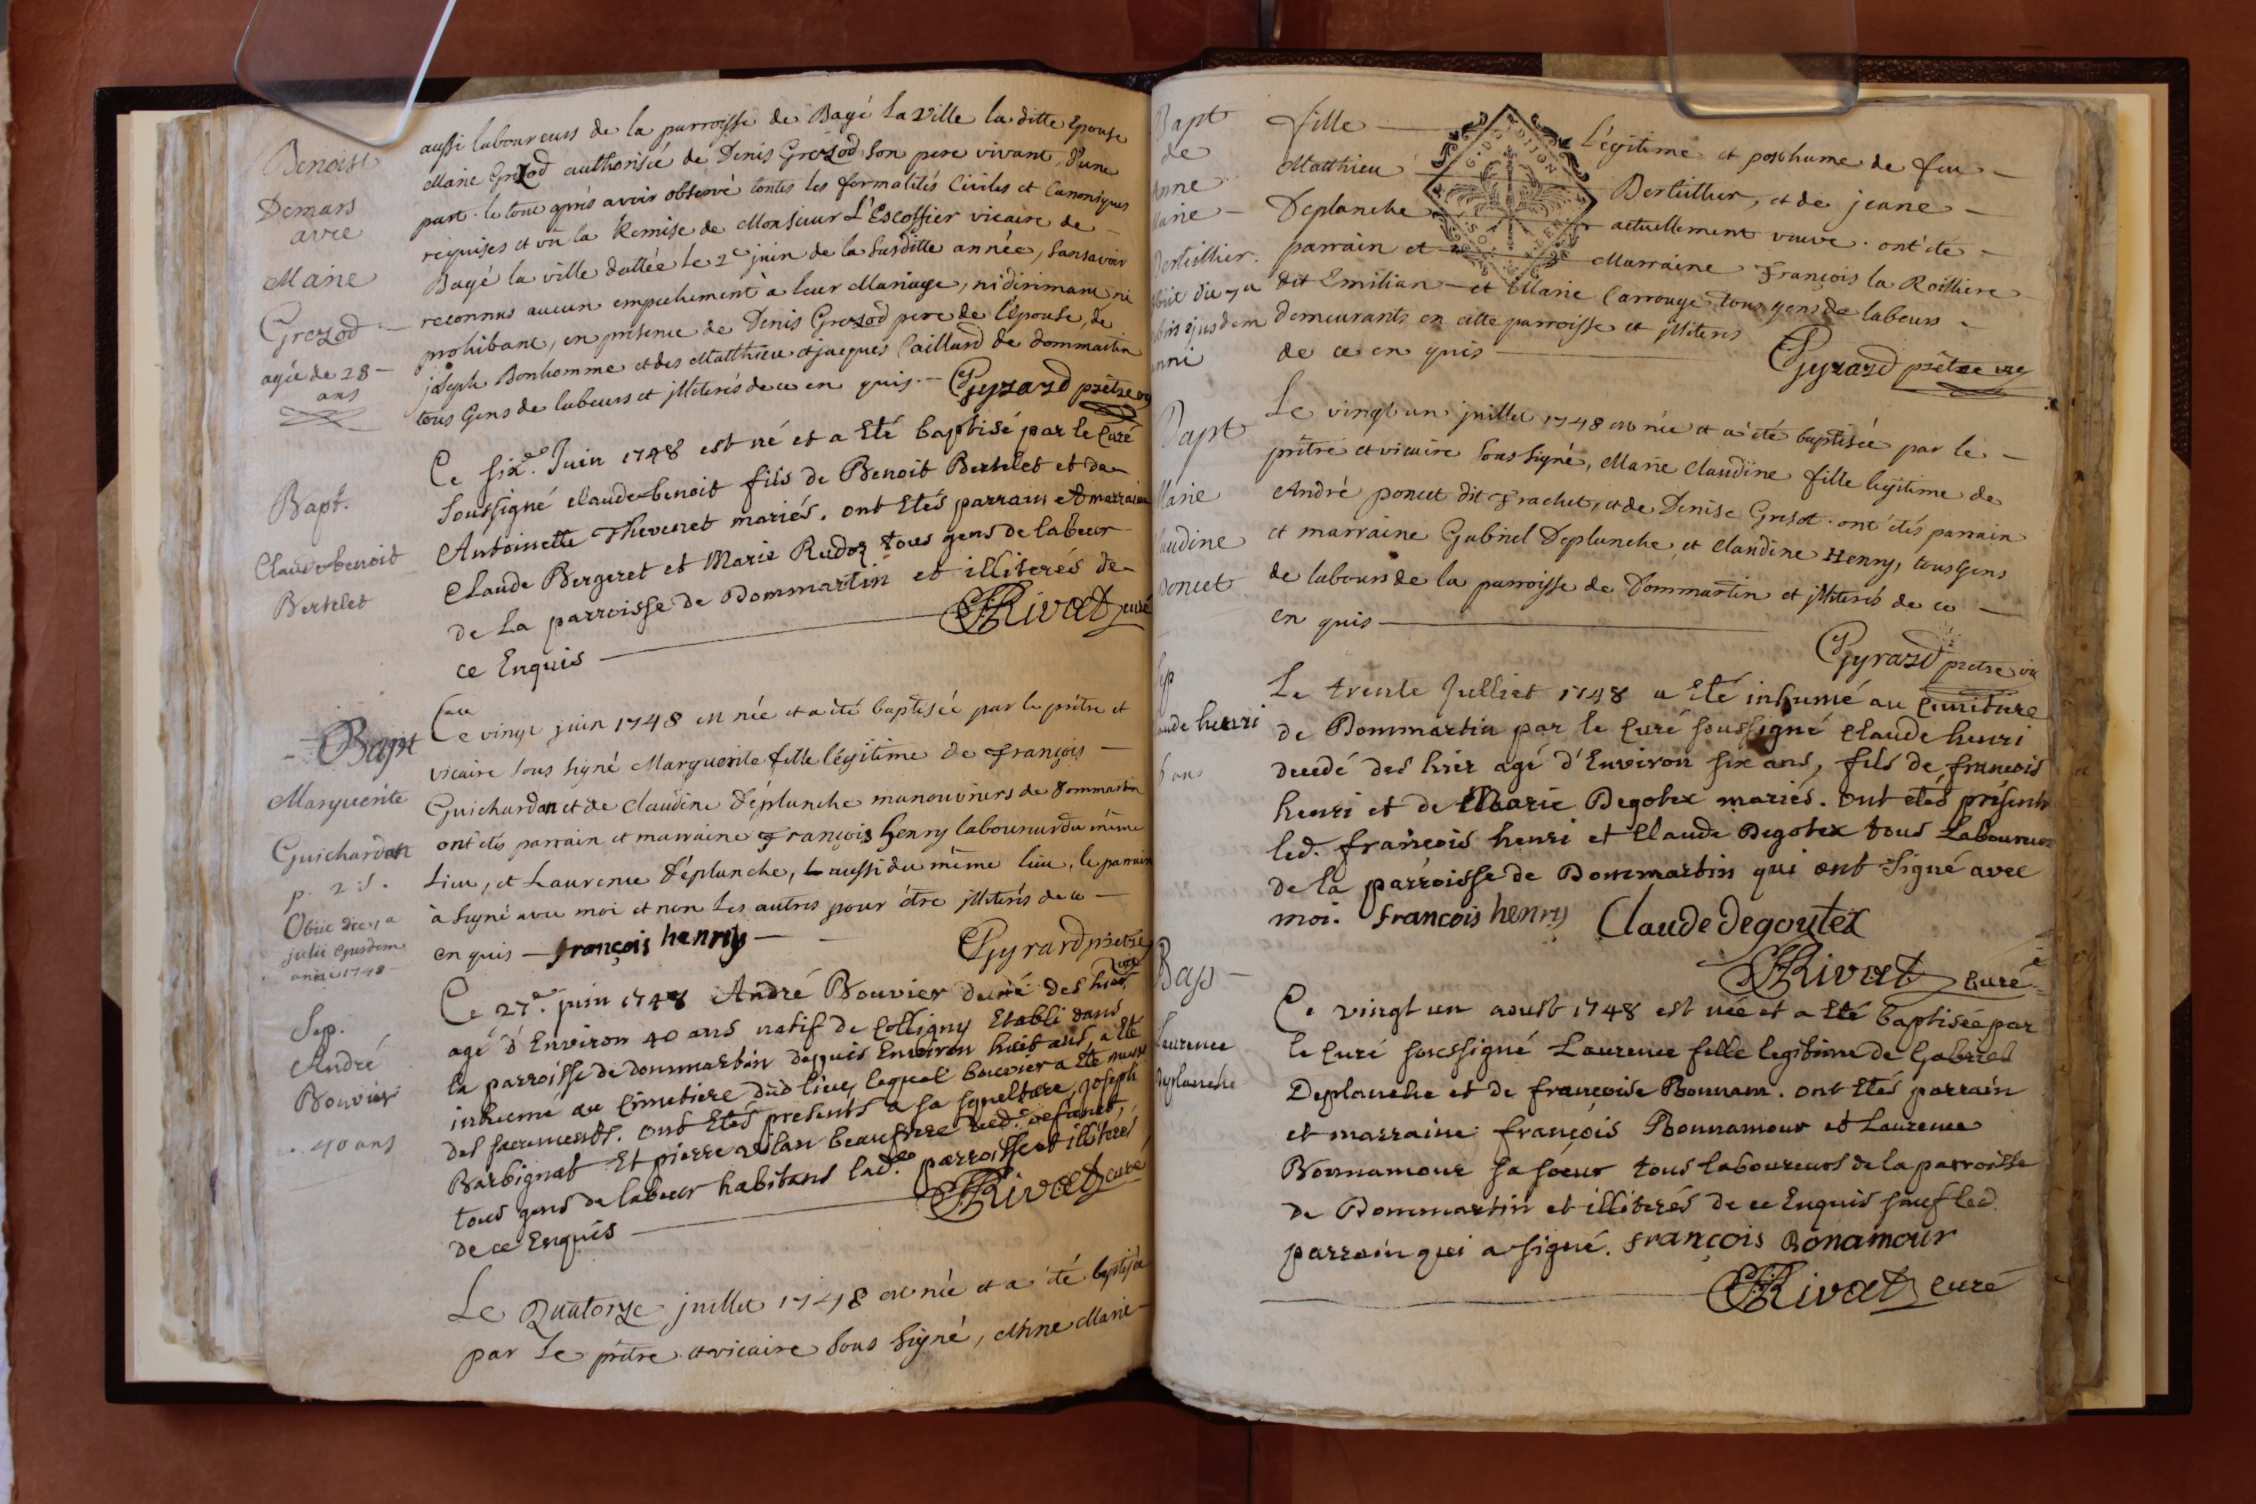 Benoist
Demars
avec
Marie
Grezod
agée de 28
ans
aussi laboureurs de la parroisse de Bagé La Ville la ditte Epouse
Marie Grezod authorisée de Denis Grezod son pere vivant, d'une
part. le tout après avoir observé toutes les formalités Civiles et Canoniques
requises et vû la Remise de Monsieur L'Escoffier vicaire de
Bagé la ville dattée le 2e juin de la susditte année, sans avoir
reconnus aucun empechement à leur Mariage, ni dirimant ni
prohibant, en présence de Denis Grezod pere de l'épouse, de
joseph Bonhomme et des Matthieu et jacques Caillard de dommartin
tous Gens de labeurs et illiterés de ce en quis. Gyrard prêtre
Bapt.
Claude benoit
Bertelet
Ce six.e Juin 1748 est né et a Eté baptisé par le Curé
Soussigné claude benoit fils de Benoit Bertelet et de
Antoinette Thevenet mariés. ont Etés parrain et marraine
Claude Bergeret et Marie Rudoz tous gens de labeur
de La parroisse de Dommartin et illiterés de
ce Enquis Rivat curé
Bapt
Marguerite
Guichardon
p. 2 s.
Obiit die 1a
julii ejusdem
anni 1748
Ce vingt juin 1748 est née et a été baptisée par le prêtre et
vicaire sous signé Marguerite fille légitime de François
Guichardon et de Claudine Déplanche manouvriers de Dommartin
ont étés parrain et marraine François henry laboureur du même
Lieu, et Laurence Déplanche, aussi du même lieu, le parrain
à signé avec moi et non les autres pour être illiterés de ce
en quis françois henry Gyrard prêtre
Sep.
André
Bouvier
40 ans
Ce 27.e juin 1748 André Bouvier decedé des hier
agé d'Environ 40 ans natif de Colligny Etabli dans
la parroisse de dommartin depuis Environ huit ans, a Eté
inhumé au Cimetiere dud lieu, lequel bouvier a Eté muni
des sacrements. ont Etés presents a sa sepulture joseph
Barbignat Et pierre beaufrere dud. defunct,
tous gens de labeur habitans lad.e parroisse et illiterés
de ce Enquis Rivat curé
Le Quatorze juillet 1748 est née et a été baptisée
par Le prêtre et vicaire sous signé, Anne Marie
Bapt
de
Anne
Marie
Berteillier
G. D. DIJON
fille Légitime et posthume de feu
Matthieu Berteillier, et de jeane
Deplanche actuellement veuve. ont été
parrain et Marraine François la Roilliere
dit Emilian et Marie Carrouge tous gens de labeurs
demeurants en cette parroisse et illiterés
de ce en quis Gyrard prêtre
Bapt
Marie
Claudine
Poncet
Le vingt un juillet 1748 est née et a été baptisée par le
prêtre et vicaire sous signé, Marie Claudine fille legitime de
André poncet dit frachet, et de Denise Gresot. ont étés parrain
et marraine Gabriel Deplanche et Claudine Henry, tous Gens
de labeurs de la parroisse de Dommartin et illiterés de ce
en quis
Gyrard prêtre
Sep
Claude henri
6 ans
Le trente Julliet 1748 a Eté inhumé au Cimitiere
de Dommartin par le Curé soussigné Claude henri
decedé des hier agé d'Environ six ans, fils de francois
henri et de Marie Degotex mariés. ont etés présents
led. françois henri et Claude Degotex tous Laboureurs
de la parroisse de Dommartin qui ont Signé avec
moi. francois henry Claude degoutex
Rivat Curé
Bap
Laurence
Deplanche
Ce vingt un aoust 1748 est née et a Eté baptisée par
le Curé soussigné Laurence fille legitime de Gabriel
Deplanche et de françoise Bonnam. ont Etés parrain
et marraine françois Bonnamour et Laurence
Bonnamour sa soeur tous laboureurs de la parroisse
de Dommartin et illiterés de ce Enquis sauf led.
parrain qui a signé. françois Bonamour
Rivat Curé